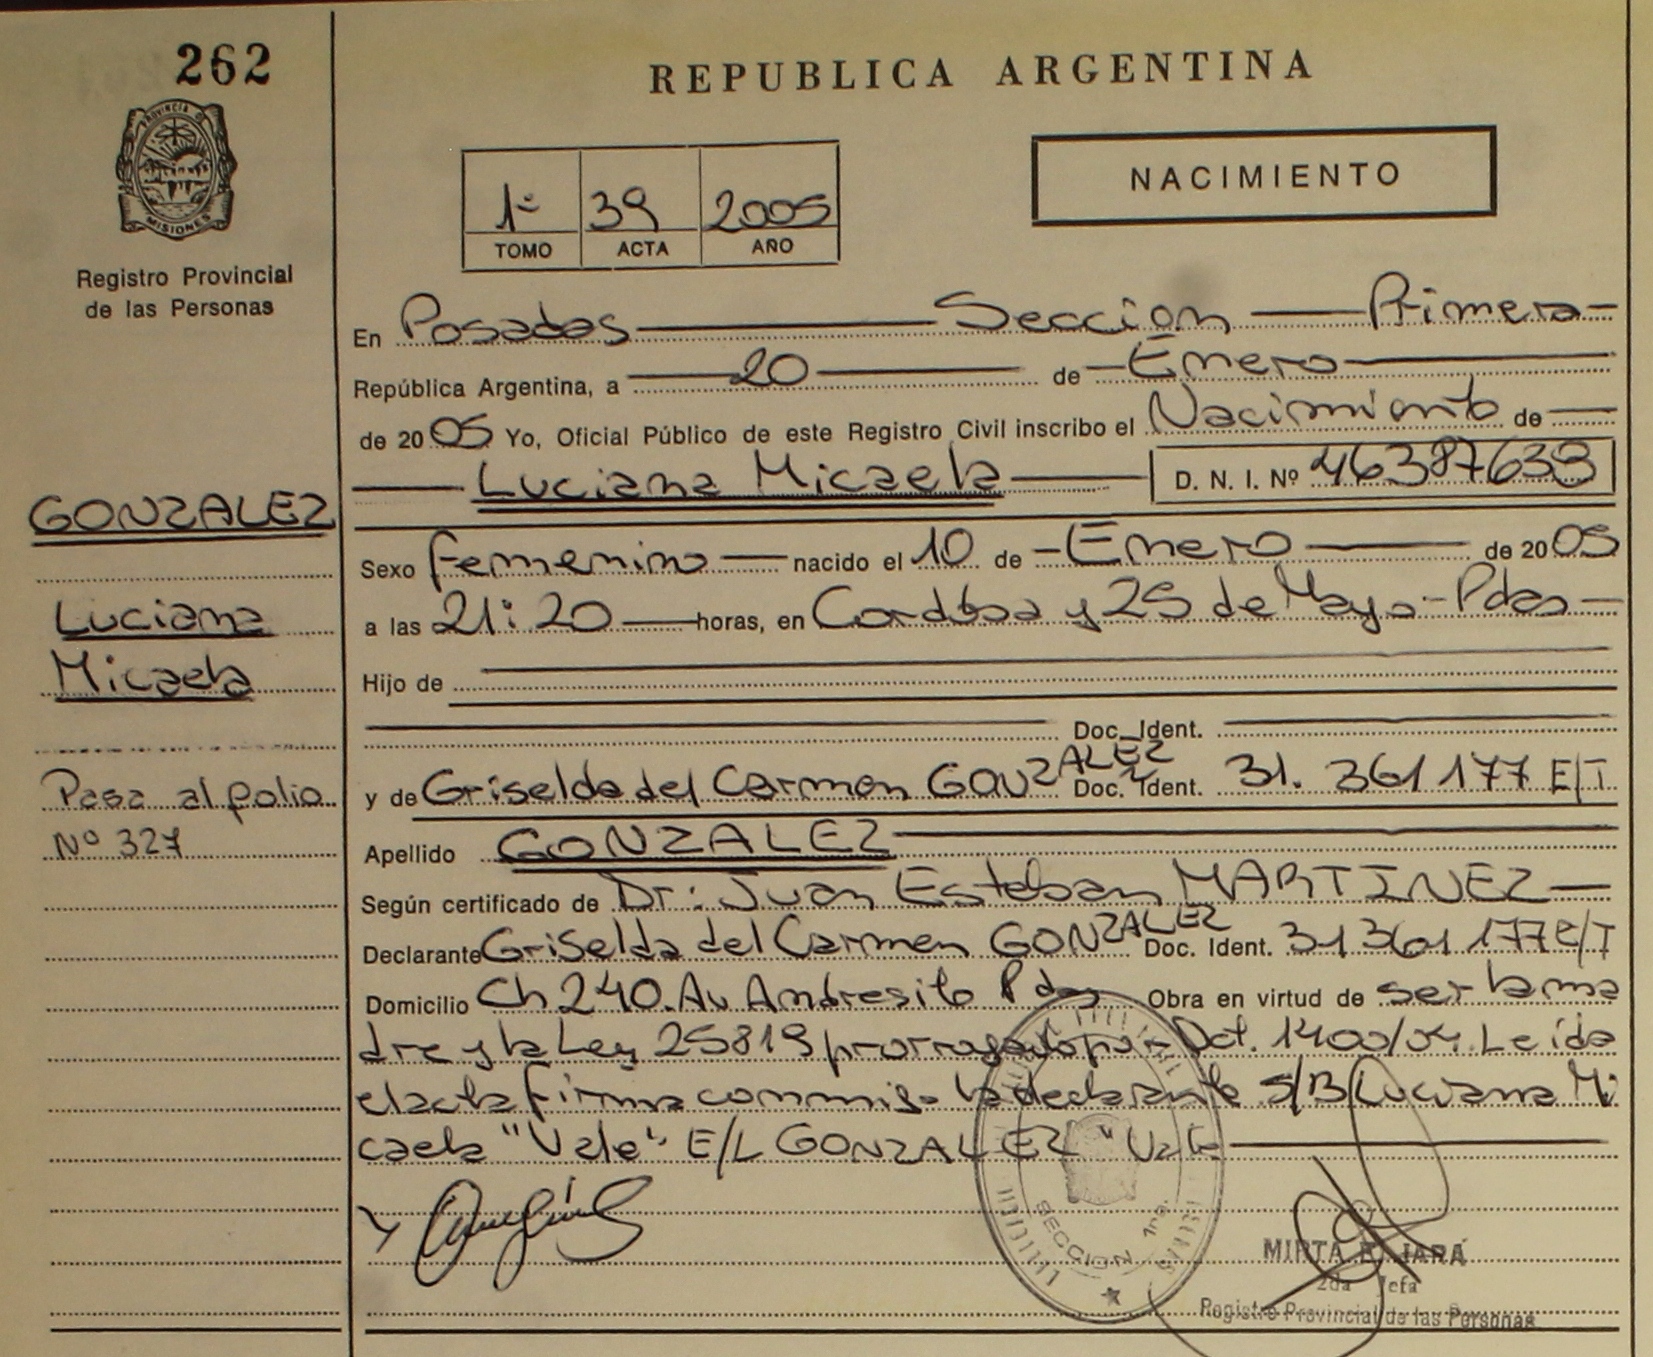 262
PROVINCIA D
MISIONES
Registro Provincial
de las Personas
GONZALEZ
Luciana
Micaela
Pasa al folio
Nº 327
REPUBLICA ARGENTINA
1º 39 2005
TOMO ACTA AÑO
NACIMIENTO
En Posadas Seccion Primera
República Argentina, a 20 de Enero
de 2005 Yo, Oficial Público de este Registro Civil inscribo el Nacimiento de
Luciana Micaela D. N. I. Nº 46387633
Sexo femenino nacido el 10 de Enero de 2005
a las 21:20 horas, en Cordoba y 25 de Mayo - Pdas
Hijo de
Doc. Ident.
y de Griselda del Carmen GONZALEZ Doc. Ident. 31.361177 E/T
Apellido GONZALEZ
Según certificado de Dr: Juan Esteban MARTINEZ
Declarante Griselda del Carmen GONZALEZ Doc. Ident. 31361177 E/T
Domicilio Ch 240. Av Andresito Pdas Obra en virtud de ser la ma
dre y la Ley 25819 prorrogado por Dct. 1400/04. Leida
el acta firma conmigo la declarante S/B Luciana Mi
caela "Vale" E/L GONZALEZ "Vale
SECCION 1ra.
MIRTA E. JARA
2da Jefa
Registro Provincial de las Personas